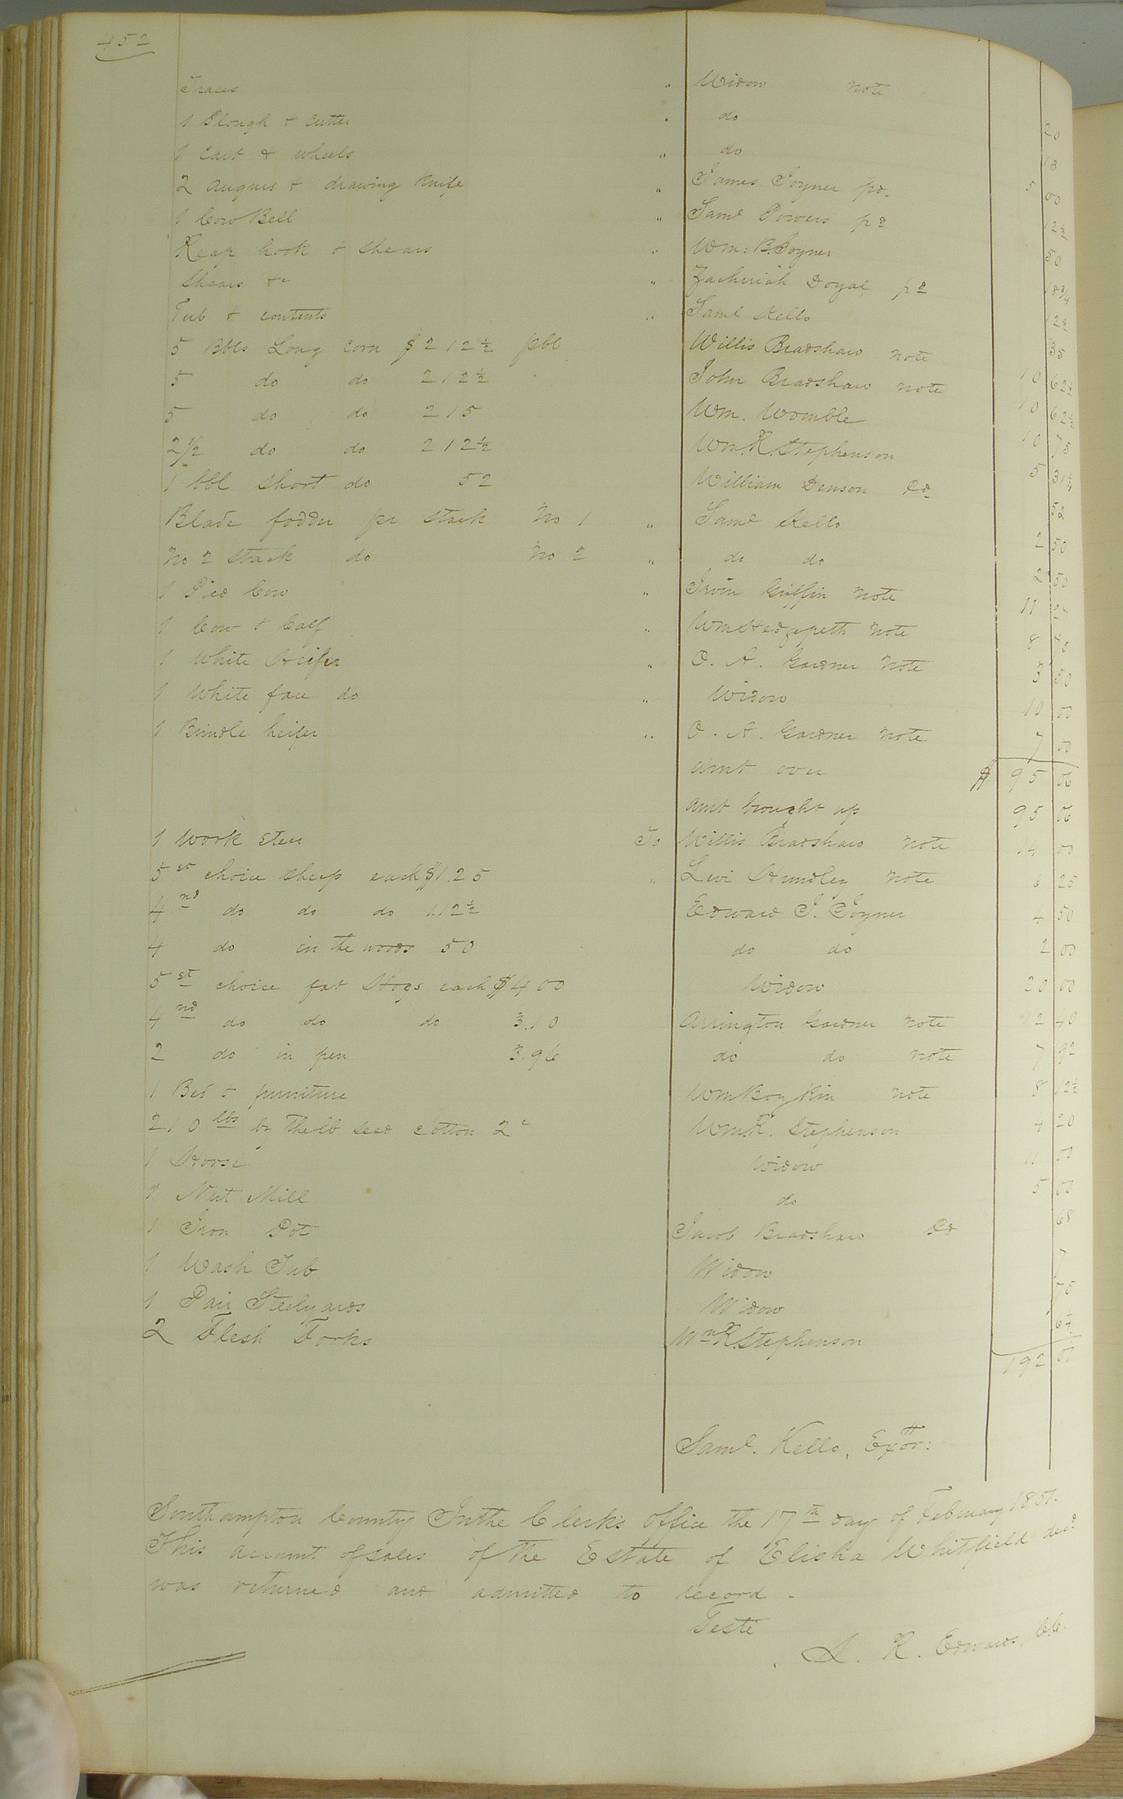 452
Traces " Widow note
1 Plough & Cutter " do 20
1 Cart & wheels " do 10
2 augurs & drawing Knife " James Joyner pd. 5 00
1 Cow Bell " Saml Powers pd 12½
Reap hook & shears " Wm: B. Joyner 50
Shears &c " Zacheriah Doyal pd 18¾
Tub & contents " Saml Kello 12½
5 Bbls Long corn $2 12½ pbl Willis Bradshaw note
5 do do 2 12½ John Bradshaw note 10 62½
5 do do 2 15 Wm. Womble 10 62½
2½ do do 2 12½ Wm. K. Stephenson 10 75
1 bbl short do 52 William Denson 5 31¼
Blade fodder pr stack No 1 " Saml Kello 52
No 2 stack do No 2 " do do 2 50
1 Pied Cow " Irvin Griffin note 2 50
1 Cow & Calf " Wm Hedgpeth note 11
1 White Heifer " O. A. Gardner note 8
1 White face do " Widow 50
1 Brindle heifer " O. A. Gardner note 10 00
7 00
amt over $ 95 06
amt brought up 95 06
1 Work Steer To Willis Bradshaw note 00
5 st choice sheep each $1.25 " Levi Hundley note 6 25
4 nd do do do 1.12½ Edward J. Joyner 4 50
4 do in the woods 50 do do 2 00
5 st choice fat Hogs each $4 00 Widow 20 00
4 nd do do do 3.10 Arrington Gardner note 12 40
2 do in pen 3.96 do do note 7 92
1 Bed & furniture Wm Boykin note 8 12½
210 lbs by the lb seed cotton 2c Wm K. Stephenson 4 20
1 Horse Widow 11 00
1 Nut Mill do 5 00
1 Iron Pot Jacob Bradshaw 68
1 Wash Tub Widow
1 Pair Steelyards Widow 75
2 Flesh Forks Wm K. Stephenson
192
Saml. Kello, Exor:
Southampton County In the Clerks office the 17th day of February
This account of sales of the Estate of Elisha Whitfield decd
was returned and admitted to record.
Teste
L. R. Edwards, C.C.